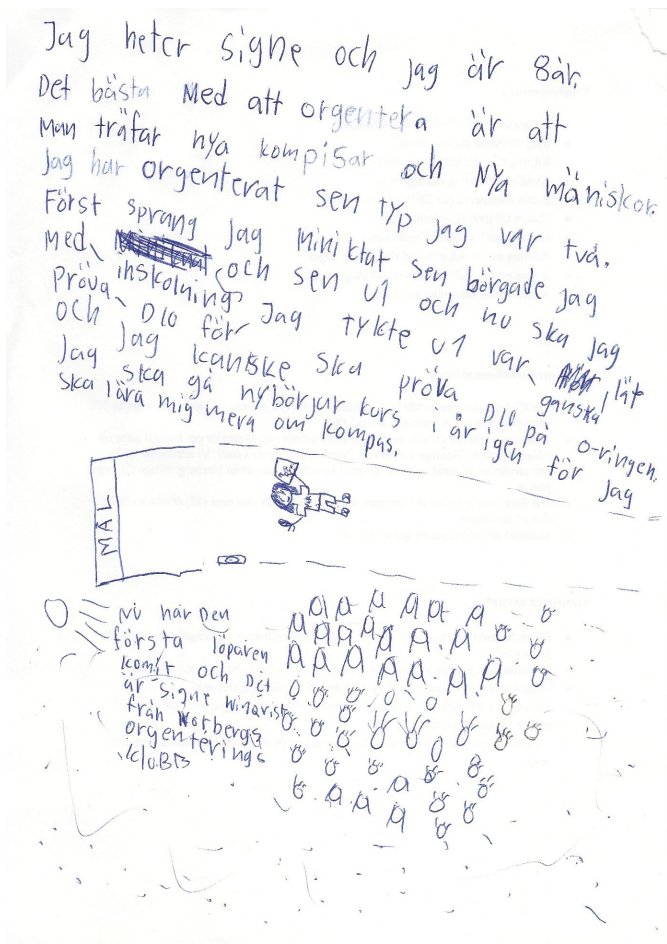 Jag heter signe och jag är 8år.
Det bästa Med att orgentera är att
Man träfar nya kompisar och NYa mäniskor.
Jag har orgenterat sen typ jag var två.
Först sprang jag miniktat sen börgade jag
med inskolning och sen U1 och nu ska jag
pröva D10 för Jag tykte U1 var ganska lät
och jag kanske ska pröva D10 på o-ringen.
Jag ska gå nybörjar kurs i år igen för jag
ska lära mig mera om kompas.
MÅL
Nu har Den
första löparen
komit och Det
är signe winqvist
från Norbergs
orgenterings
kluBB